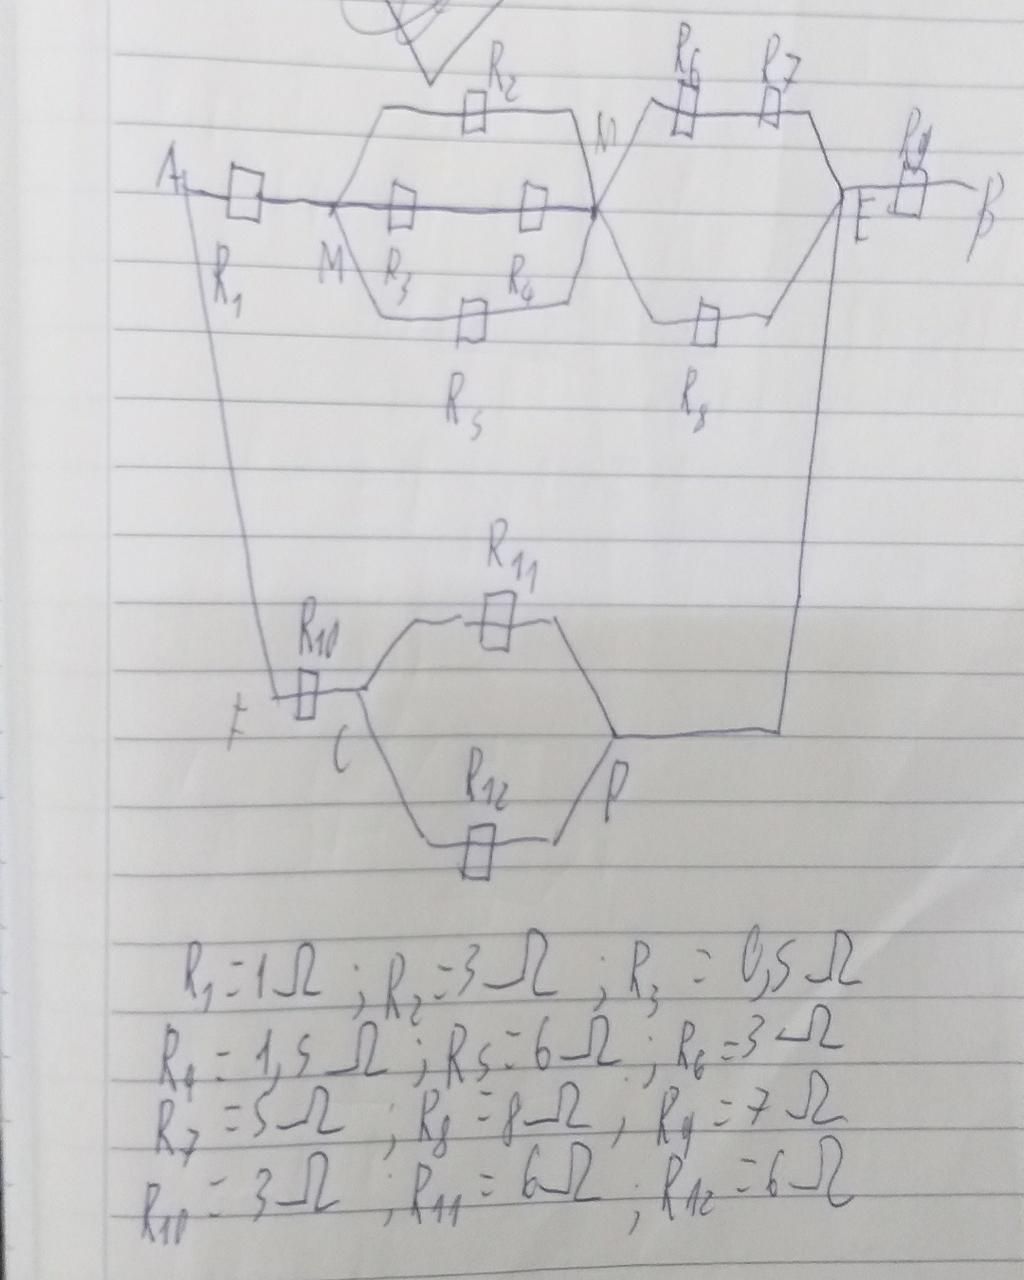 R2 R6 R7
A N R9
M R3 R4 E B
R1
R5 R8
R11
R10
F C
R12 P
R1=1Ω ; R2=3Ω ; R3 = 0,5Ω
R4 = 1,5Ω ; R5=6Ω ; R6=3Ω
R7=5Ω ; R8=8Ω ; R9=7Ω
R10= 3Ω ; R11= 6Ω ; R12=6Ω